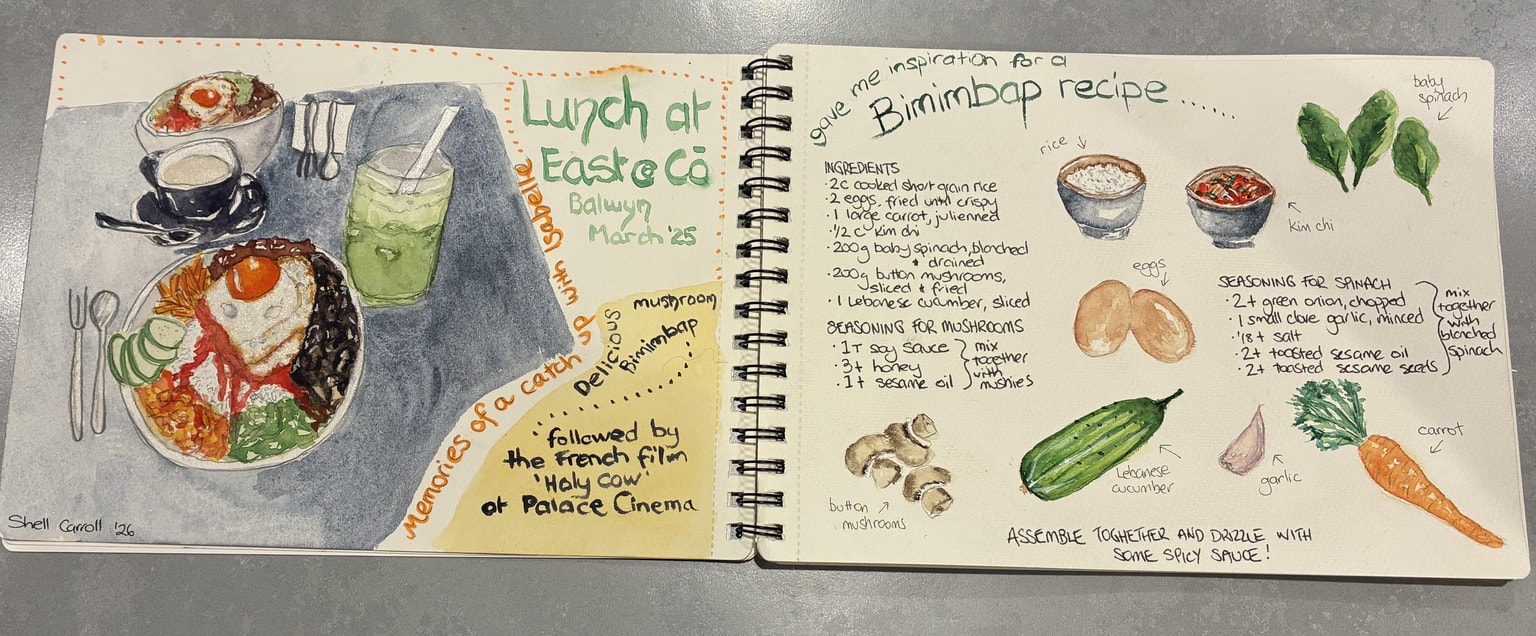 Lunch at
East @ Co
Balwyn
March '25
Memories of a catch up with Isabelle
Delicious
mushroom
Bimimbap
followed by
the French film
'Holy Cow'
at Palace Cinema
Shell Carroll '26
gave me inspiration for a
Bimimbap recipe.....
INGREDIENTS
· 2c cooked short grain rice
· 2 eggs, fried until crispy
· 1 large carrot, julienned
· 1/2 c kim chi
· 200g baby spinach, blanched
+ drained
· 200g button mushrooms,
sliced + fried
· 1 Lebanese cucumber, sliced
SEASONING FOR MUSHROOMS
· 1T soy sauce
· 3t honey
· 1t sesame oil
mix
together
with
mushies
rice
kim chi
baby
spinach
eggs
SEASONING FOR SPINACH
· 2t green onion, chopped
· 1 small clove garlic, minced
· 1/8 t salt
· 2t toasted sesame oil
· 2t toasted sesame seeds
mix
together
with
blanched
spinach
button
mushrooms
Lebanese
cucumber
garlic
carrot
ASSEMBLE TOGHETHER AND DRIZZLE WITH
SOME SPICY SAUCE!